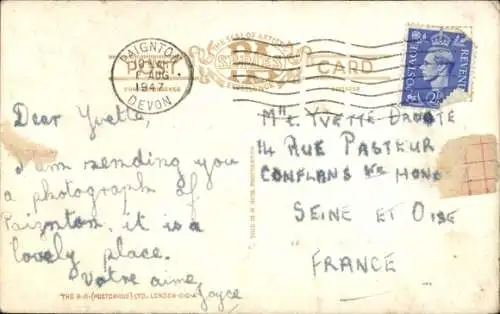 PAIGNTON
1 AUG
1947
DEVON
THE SEAL OF ARTISTIC
EXCELLENCE
POST
CARD
POSTAGE
REVENUE
Dear Yvette,
I am sending you
a photograph of
Paignton, it is a
lovely place.
Votre aime
Joyce
Mlle YVETTE
14 RUE PASTEUR
CONFLANS Ste HONO
SEINE ET OISE
FRANCE
THE R.A. (POSTCARDS) LTD., LONDON E.C.4